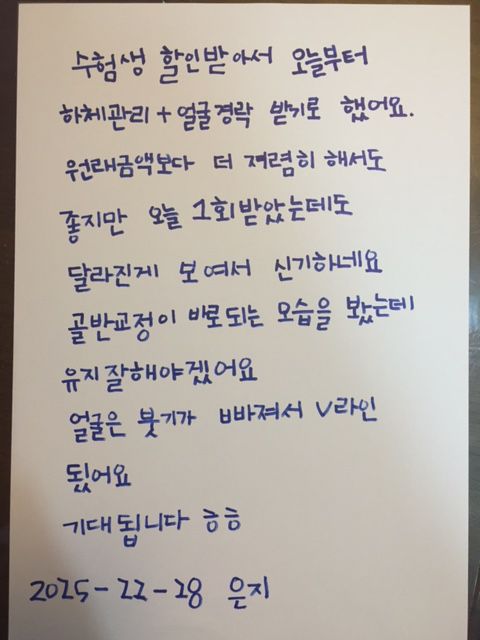 수험생 할인받아서 오늘부터
하체관리 + 얼굴경락 받기로 했어요.
원래금액보다 더 저렴히 해서도
좋지만 오늘 1회받았는데도
달라진게 보여서 신기하네요
골반교정이 바로되는 모습을 봤는데
유지잘해야겠어요
얼굴은 붓기가 빠져서 V라인
됬어요
기대됩니다 ㅎㅎ
2025-22-28 은지